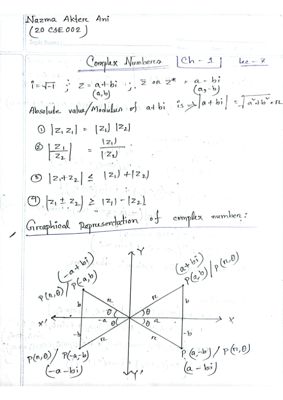 Nazma Akter Ani
(20 CSE 002)
Complex Numbers Ch - 1
i = √-1 ; z = a+bi ; z̄ or z* = a - bi
(a, b) (a, -b)
Absolute value/Modulus of a+bi is → |a+bi| = √a²+b² = r
① |z₁ z₂| = |z₁| |z₂|
② |z₁/z₂| = |z₁|/|z₂|
③ |z₁+z₂| ≤ |z₁|+|z₂|
④ |z₁ ± z₂| ≥ |z₁| - |z₂|
Graphical Representation of complex number:
Y
(-a+bi) (a+bi)
P(r,θ) / P(-a,b) P(a,b) / P(r,θ)
b r r b
θ θ
X' -a a X
θ θ
-b r r -b
P(r,θ) / P(-a,-b) P(a,-b) / P(r,θ)
(-a-bi) Y' (a-bi)